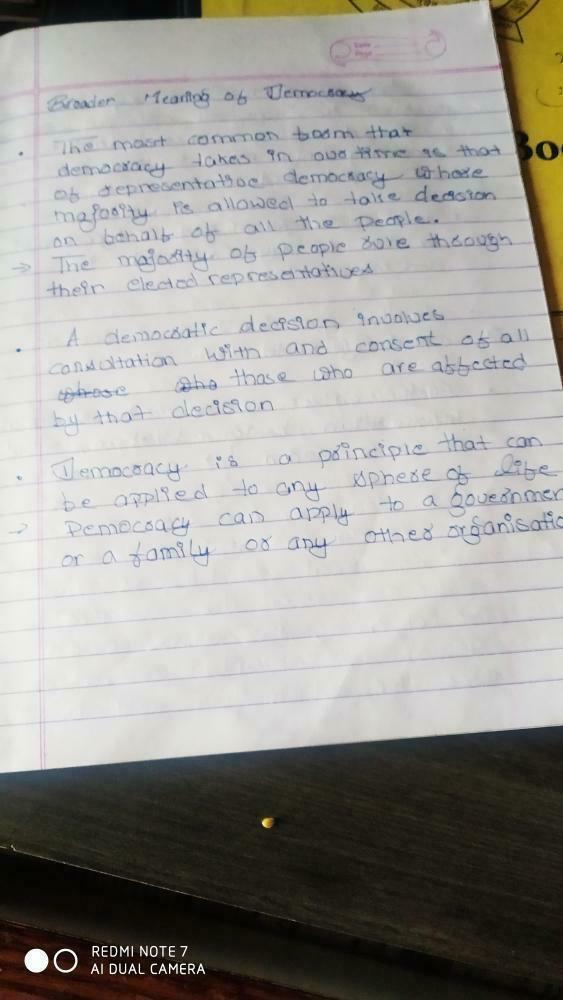 Broader Meaning of Democracy
• The most common boom that
democracy takes in our time is that
of representative democracy whose
majority is allowed to take decision
on behalf of all the people.
→ The majority of people rule through
their elected representatives
• A democratic decision involves
consultation with and consent of all
those who are affected
by that decision
• Democracy is a principle that can
be applied to any sphere of life
→ Democracy can apply to a governmen
or a family or any other organisatio
Bo
REDMI NOTE 7
AI DUAL CAMERA